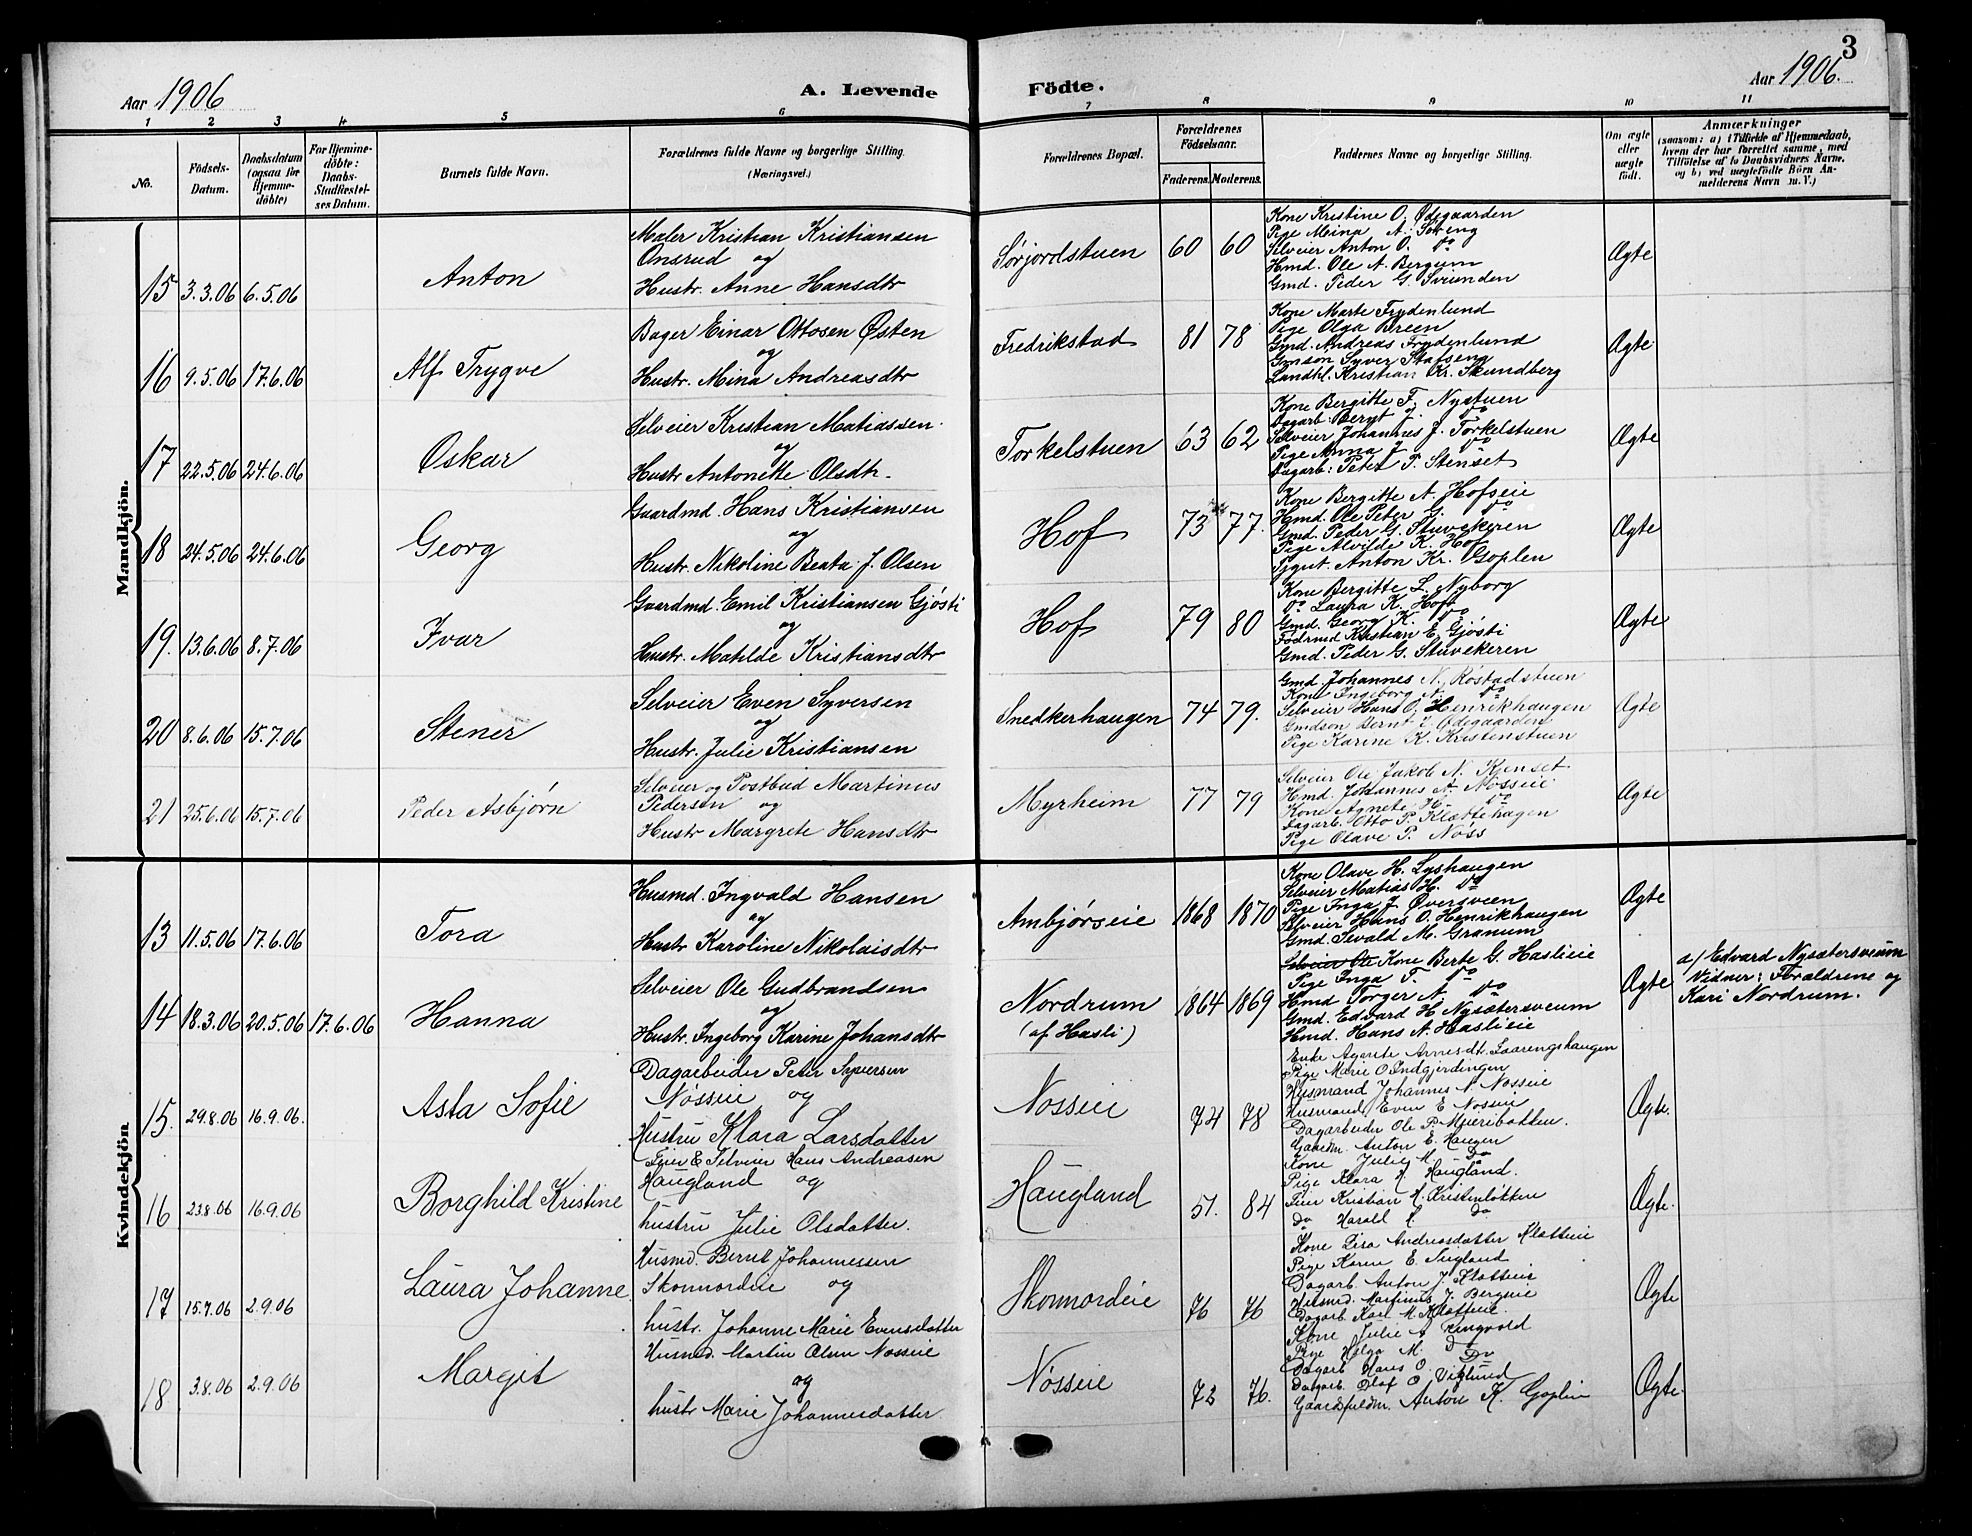 3
Aar 1906
A. Levende
Födte.
Aar 1906.
1 2 3 4 5 6 7 8 9 10 11
No.
Födsels-Datum.
Daabsdatum (ogsaa for Hjemmedöbte)
For Hjemmedöbte: Daabs-Stadfestelses Datum.
Barnets fulde Navn.
Forældrenes fulde Navne og borgerlige Stilling. (Næringsvei.)
Forældrenes Bopæl.
Forældrenes Födselsaar.
Faderens. Moderens.
Faddernes Navne og borgerlige Stilling.
Om ægte eller uægte födt.
Anmærkninger
(saasom: a) i Tilfælde af Hjemmedaab, hvem der har forrettet samme, med Tilföielse af to Daabsvidners Navne. og b) ved uægtefödte Börn Anmelderens Navn m. V.)
Mandkjön.
15 3.3.06 6.5.06 Anton
Maler Kristian Kristiansen
Onsrud og
Hustr. Anne Hansdtr
Sørjordstuen 60 60
Kone Kristine O. Ødegaarden
Pige Mina A. Søeng
Selveier Anton O. do
Hmd. Ole A. Bergum
Gmd. Peder G. Sviunden
Ægte
16 9.5.06 17.6.06 Alf Trygve
Bager Einar Ottosen Østen
og
Hustr. Mina Andreasdtr
Fredrikstad 81 78
Kone Marte Frydenlund
Pige Olga Breen
Gmd. Andreas Frydenlund
Gmson Syver Stafseng
Landhl. Kristian Kr. Skundberg
Ægte
17 22.5.06 24.6.06 Oskar
Selveier Kristian Matiassen
og
Hustr Antonette Olsdtr.
Torkelstuen 63 62
Kone Bergitte F. Nystuen
Dagarb. Bergt J. do
Selveier Johannes J. Torkelstuen
Pige Anna J. do
Dagarb: Peter P. Stenset
Ægte
18 24.5.06 24.6.06 Georg
Gaardmd. Hans Kristiansen
og
Hustr. Nikoline Beata J. Olsen
Hof 73 77.
Kone Bergitte A. Hofseie
Hmd. Ole Peter G. do
Gmd. Peder G. Stuvekeren
Pige Alvilde K. Hof
Ygut. Anton Kr. Goplen
Ægte
19. 13.6.06 8.7.06 Ivar
Gaardmd. Emil Kristiansen Gjøsti
og
Hustr. Matilde Kristiansdtr
Hof 79 80
Kone Bergitte L. Nyborg
do Laura K. Hof
Gmd. Georg K. do
Födrmd Kristian E. Gjøsti
Gmd. Peder G. Stuvekeren
Ægte
20 8.6.06 15.7.06 Stener
Selveier Even Syversen
og
Hustr. Julie Kristiansen
Snedkerhaugen 74 79.
Gmd. Johannes N. Røstadstuen
Kone Ingeborg A. do
Selveier Hans O. Henrikhaugen
Gmdson Bernt L. Ødegaarden
Pige Karine K. Kristenstuen
Ægte
21 25.6.06 15.7.06 Peder Asbjørn
Selveier og Postbud Martinus
Pedersen og
Hustr Margrete Hansdtr
Myrheim 77 79
Selveier Ole Jakob N. Kjenset
Hmd. Johannes A. Nøsseie
Kone Agnete H. do
Dagarb. Otto P. Klættehagen
Pige Olave P. Nøss
Ægte
Kvindekjön
13 11.5.06 17.6.06 Tora
Husmd. Ingvald Hansen
og
Hustr Karoline Nikolaisdtr
Ambjørseie 1868 1870
Kone Olave H. Lyshaugen
Selveier Matias H. do
Pige Inga J. Øversveen
Selveier Hans O. Henrikhaugen
Gmd. Sevald M. Granum
Ægte
14 18.3.06 20.5.06 17.6.06 Hanna
Selveier Ole Gudbrandsen
og
Hustr. Ingeborg Karine Johansdtr
Nordrum
(af Hasli)
1864 1869
Selveier Ole Kone Berte G. Haslieie
Pige Inga T. do
Hmd Torger A. do
Gmd. Edvard H. Nysætersveum
Hmd. Hans A. Haslieie
Ægte
a/ Edvard Nysætersveum
Vidner: Forældrene og
Kari Nordrum.
15. 29.8.06 16.9.06. Asta Sofie
Dagarbeider Peter Syversen
Nøsseie og
Hustru Klara Larsdatter
Nosseie 74 78
Enke Agnete Arnesdt. Laarengshaugen
Pige Marie O Indgjerdingen
Husmand Johannes A. Nosseie
Husmand Even E Nosseie
Dagarbeider Ole P. Mjøribakken.
Gaardm. Anton E. Haugen
Ægte.
16 23.8.06 16.9.06 Borghild Kristine
Feier & Selveier Hans Andreasen
Haugland og
hustru Julie Olsdatter.
Haugland 51. 84
Kone Julie M. Do
Pige Klara H. Haugland.
Feier Kristian H. Kristenløkken
do Harald H. do
Ægte.
17 15.7.06 2.9.06 Laura Johanne
Husmd. Bernt Johannessen
Skonnordeie og
hustr. Johanne Marie Evensdatter
Skonnordeie 76 76
Kone Lisa Andreasdatter Klatteie
Pige Karen E. Seigland
Dagarb. Anton J. Klatteie
Husmd. Martinus J. Bergseie
Dagarb Karl M. Klatteie.
Ægte
18 3.8.06 2.9.06 Margit
Husmd. Martin Olsen Nosseie
og
hustr Marie Johannesdatter
Nösseie 72 76.
Kone Julie A. Ringvold
Pige Helga M. Do
Dagarb Hans O. Do
Dagarb. Olaf O. Viglund
Gaardfuldm. Anton K. Goplen
Ægte.